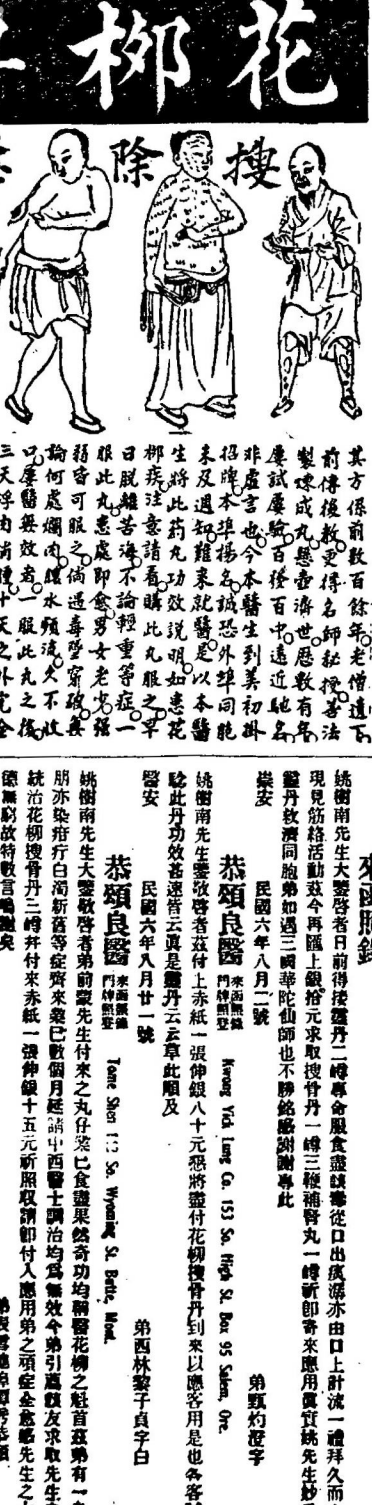 花柳
搜除
其方係前數百餘年老僧遺下
前傳授教更得名師秘授善法
製煉成丸懸壺濟世歷數有年
屢試屢驗百發百中遠近馳名
非虛言也今本醫生到美初掛
招牌本埠揚名誠恐外埠同胞
未及週知難來就醫是以本醫
生將此葯丸功效說明如患花
柳疾注意請看購此丸服之早
日脫離苦海不論輕重等症一
服此丸患處即愈男女老少強
弱皆可服之倘遇毒墮穿破無
論何處爛肉膿水頻流久不收
口屢醫無效者一服此丸之後
三天浮肉消腫十天之外完全
來函照錄
姚樹南先生大鑒啓者日前得接靈丹二樽專命服食盡該毒從口出痰瀝亦由口上計流一禮拜久而
現見筋絡活動茲今再匯上銀拾元求取搜骨丹一樽三鞭補腎丸一樽祈即寄來應用眞實姚先生妙
靈丹救濟同胞弟如遇三國華陀仙師也不勝銘感謝謝專此
崇安
民國六年八月二號
弟甄灼澄字
恭頌良醫
來函照錄
門牌照登
Kwong Yick Lung Co. 153 So. High St. Box 95 Salem, Ore.
姚樹南先生鑒敬啓者茲付上赤紙一張伸銀八十元懇將盡付花柳搜骨丹到來以應客用是也各客
騐此丹功效甚速皆云眞是靈丹云云草此順及
醫安
民國六年八月廿一號
弟西林黎子貞字白
恭頌良醫
來函照錄
門牌照登
Tome Shon 112 So. Wyoming St. Butte, Mont.
姚樹南先生大鑒敬啓者弟前蒙先生付來之丸仔業已食盡果然奇功均稱醫花柳之魁首茲弟有一
朋亦染疳疔白濁新舊等症齊來業已數個月延請中西醫士調治均爲無效今弟引薦該友求取先生
統治花柳搜骨丹二樽并付來赤紙一張伸銀十五元祈照收請即付入應用弟之頑症全愈銘先生之
德無窮故特數言鳴謝矣